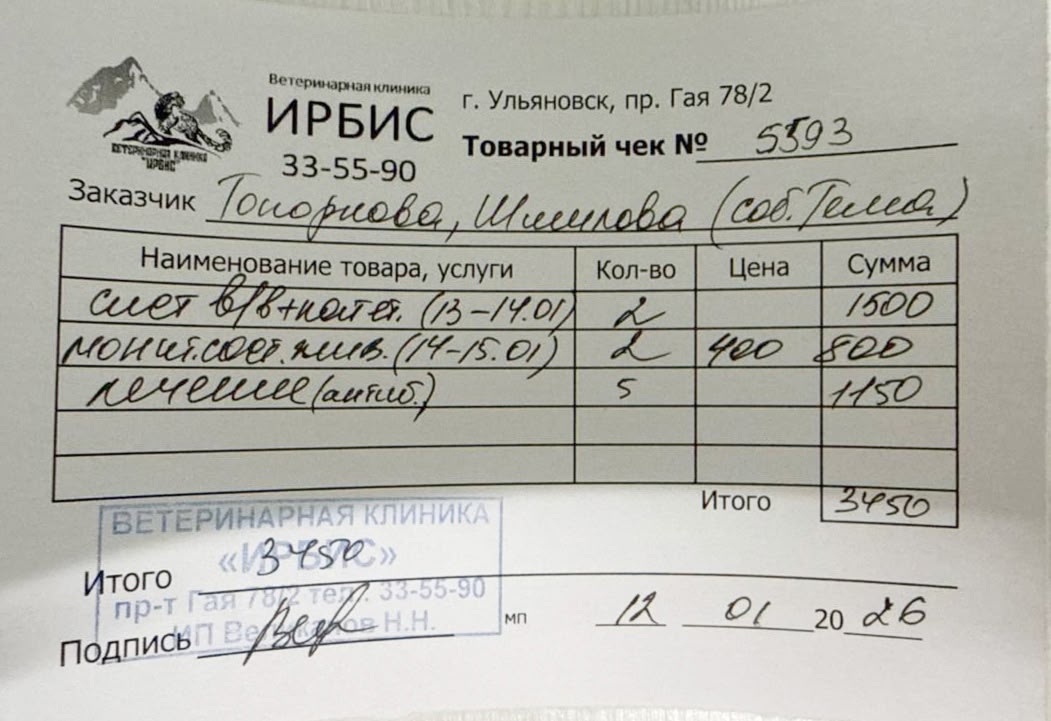 Ветеринарная клиника
ИРБИС
33-55-90
ВЕТЕРИНАРНАЯ КЛИНИКА
"ИРБИС"
г. Ульяновск, пр. Гая 78/2
Товарный чек № 5593
Заказчик Топоркова, Шмилова (соб. Тема)
Наименование товара, услуги Кол-во Цена Сумма
сист в/в+кат.ет. (13-14.01) 2 1500
монит.сост.жив. (14-15.01) 2 400 800
лечение (антиб.) 5 1150
Итого 3450
ВЕТЕРИНАРНАЯ КЛИНИКА
«ИРБИС»
Итого 3450
пр-т Гая 78/2 тел.: 33-55-90
ИП Великанов Н.Н.
Подпись мп 12 01 2026